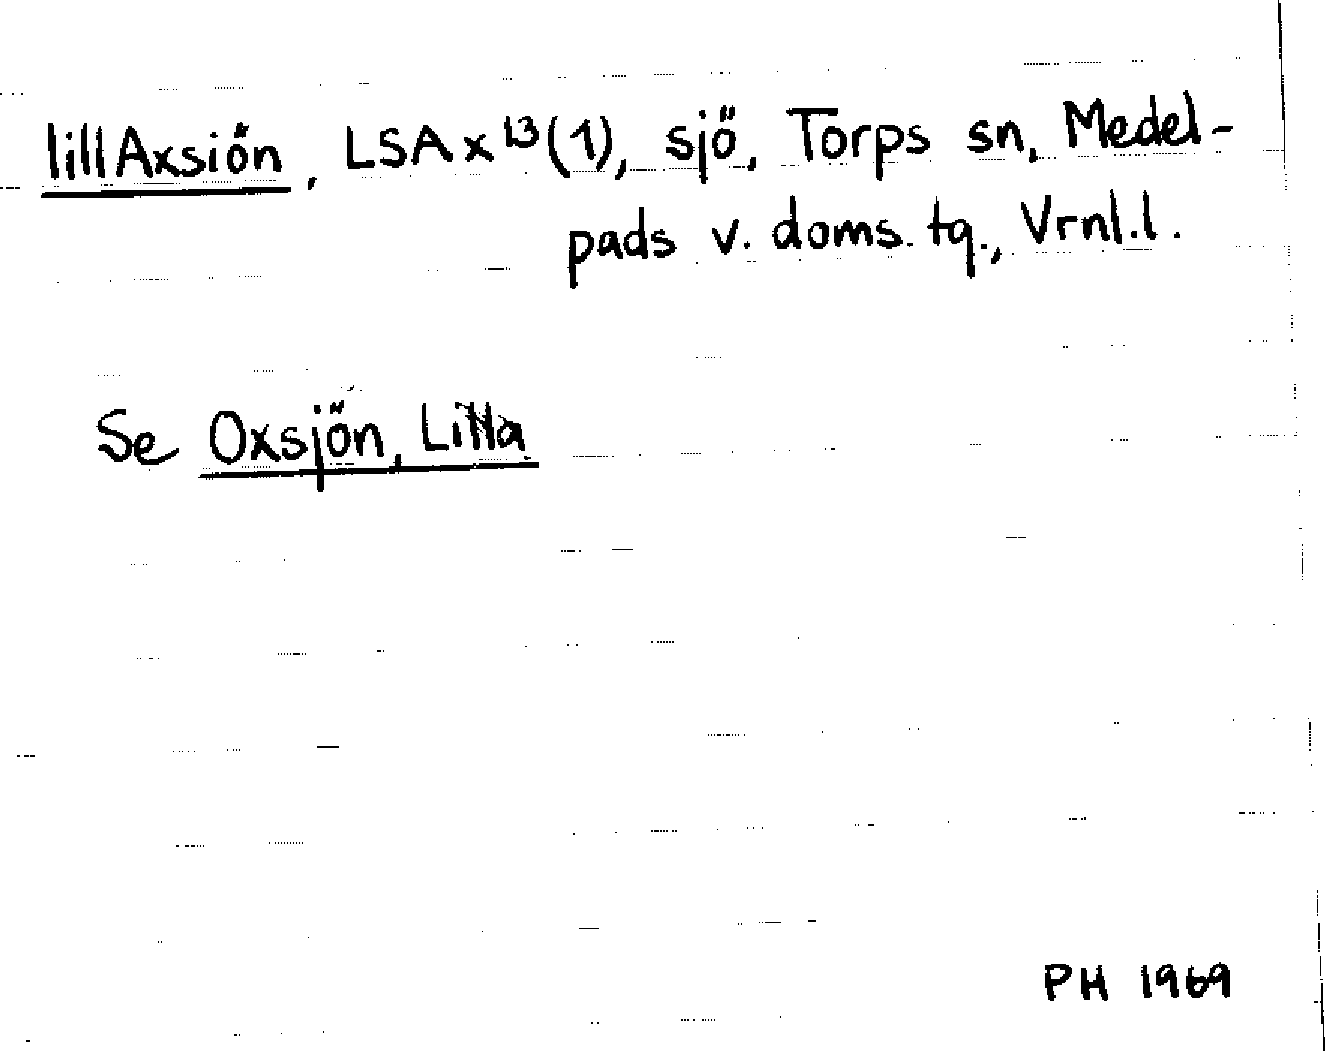 lillAxsiön, LSAx¹³(1), sjö, Torps sn, Medel-
pads v. doms. tg., Vrnl.l.
Se Oxsjön, Lilla
PH 1969